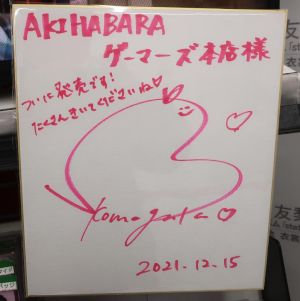 AKIHABARA
ゲーマーズ本店様
ついに発売です!
たくさんきいてくださいね♡
2021.12.15